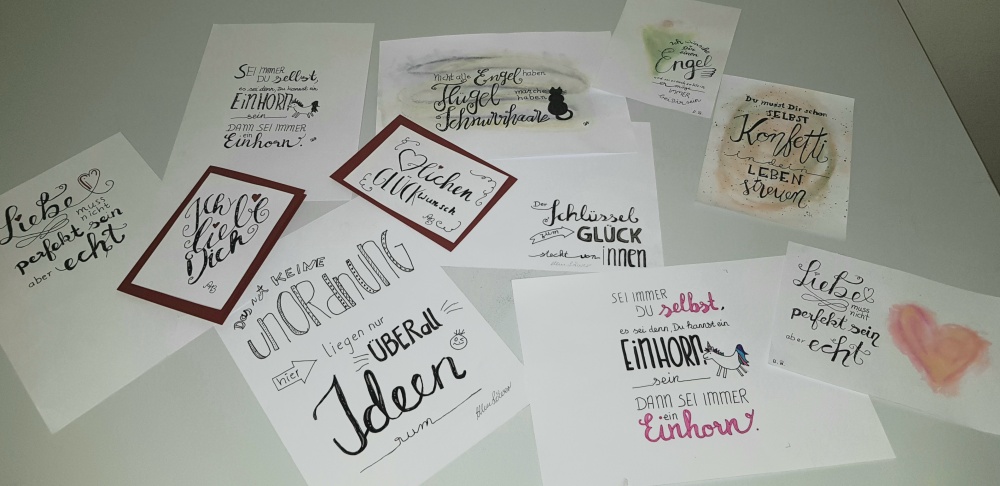 SEI IMMER
DU selbst,
es sei denn, Du kannst ein
EINHORN
sein
DANN SEI IMMER
ein
Einhorn.
Nicht alle Engel haben
Flügel manche
haben
Schnurrhaare
Ich
Du
einen
Engel
IMMER
Du musst Dir schon
SELBST
Konfetti
in dein
LEBEN
streuen
Liebe
muss
nicht
perfekt sein
aber echt
Ich hab
lieb
Dich
Herzlichen
GLÜCKwunsch
Der
Schlüssel
zum GLÜCK
steckt von innen
Das ist KEINE
UNORDNUNG
hier liegen nur
ÜBERall
Ideen
rum
SEI IMMER
DU selbst,
es sei denn, Du kannst ein
EINHORN
sein
DANN SEI IMMER
ein
Einhorn.
Liebe
muss
nicht
perfekt sein
aber echt